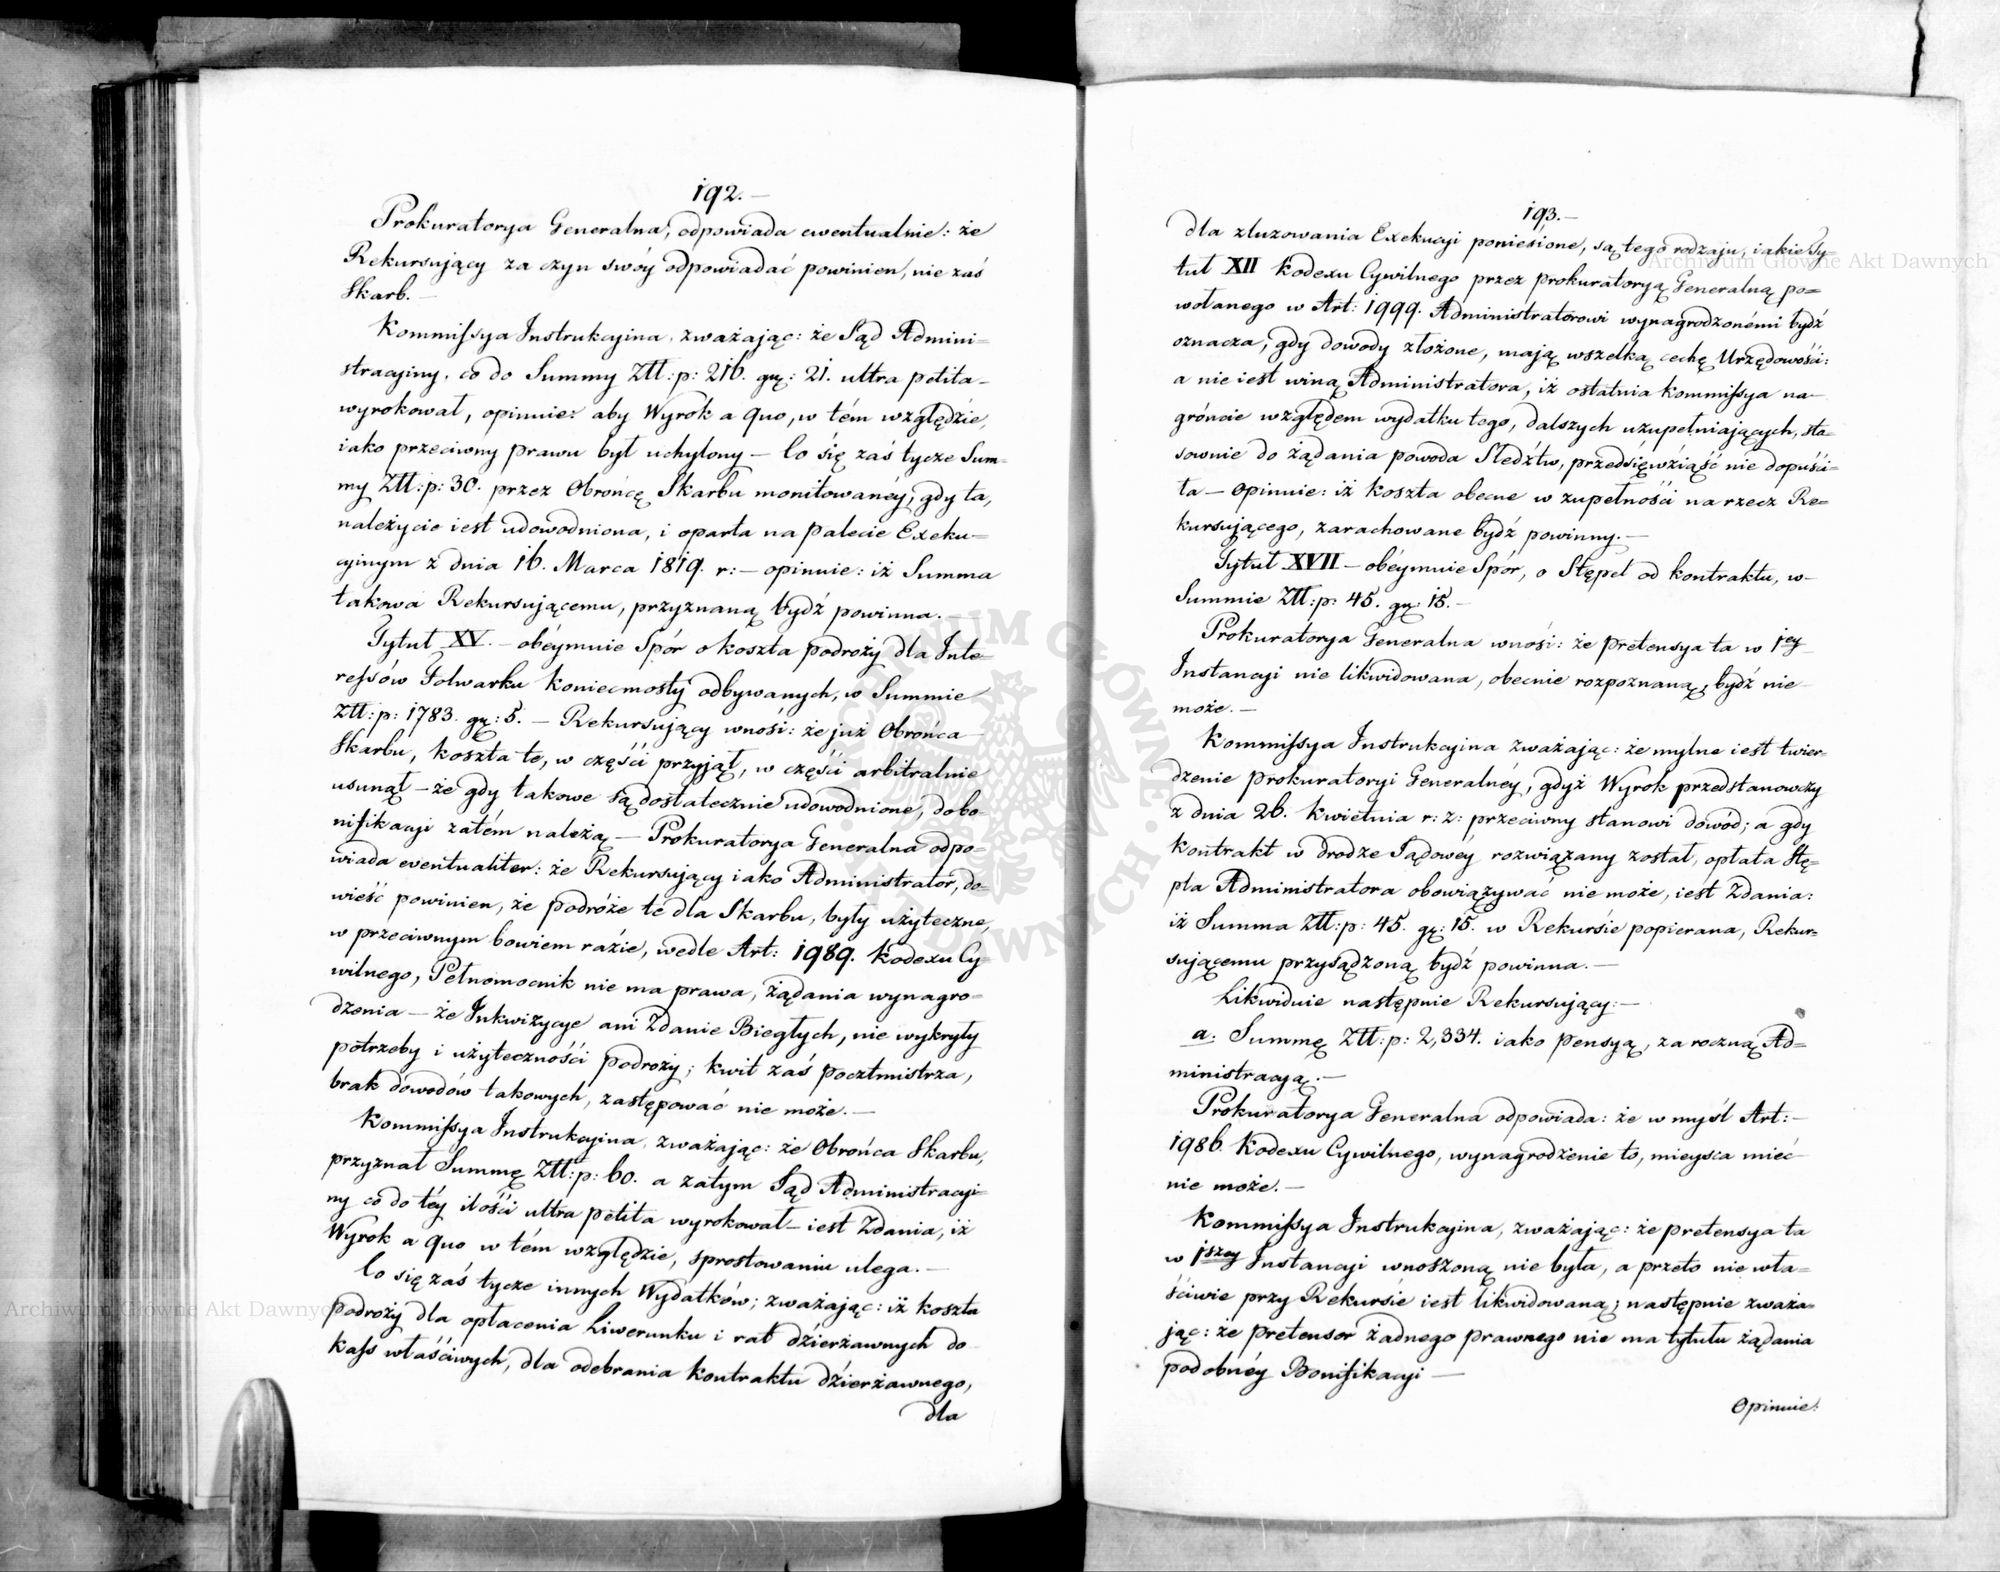 192.—
Prokuratorya Generalna, odpowiada ewentualnie: że
Rekursujący za czyn swóy odpowiadać powinien, nie zaś
Skarb.—
Kommissya Instrukcyina, zważając: że Sąd Admini-
stracyiny, co do Summy Ztt:p: 216. gr: 21. ultra petita-
wyrokował, opiniuie: aby Wyrok a quo, w tém względzie,
iako przeciwny prawu był uchylony — Co się zaś tycze Sum-
my Ztt:p: 30. przez Obrońcę Skarbu monitowanéy, gdy ta,
należycie iest udowodniona, i oparta na palecie Exeku=
cyinym z dnia 16. Marca 1819. r:— opiniuie: iż Summa
takowa Rekursującemu, przyznaną bydź powinna.—
Tytuł XV.— obéymuie Spór o koszta podroży dla Inte-
ressów Folwarku Koniecmosty odbywanych, w Summie
Ztt:p: 1783. gr: 5.— Rekursujący wnosi: że już Obrońca
Skarbu, koszta te, w części przyjął, w części arbitralnie
usunął — że gdy takowe są dostatecznie udowodnione, do bo-
nifikacyi zatém należą — Prokuratorya Generalna odpo=
wiada eventualiter: że Rekursujący iako Administrator, do-
wieść powinien, że podróże te dla Skarbu, były użyteczne,
w przeciwnym bowiem raźie, wedle Art: 1989. Kodexu Cy-
wilnego, Pełnomocnik nie ma prawa, żądania wynagro-
dzenia — że Inkwizycye ani Zdanie Biegłych, nie wykryły
potrzeby i użyteczności podroży; kwit zaś pocztmistrza,
brak dowodów takowych, zastępować nie może.—
Kommissya Instrukcyina, zważając: że Obrońca Skarbu,
przyznał Summę Ztt:p: 60. a zatym Sąd Administracyi-
ny co do téy ilości ultra petita wyrokował — iest Zdania, iż
Wyrok a quo w tém względzie, sprostowaniu ulega.—
Co się zaś tycze innych Wydatków; zważając: iż koszta
podroży dla opłacenia Liwerunku i rat dzierżawnych do
kass właściwych, dla odebrania kontraktu dzierżawnego,
dla
193.—
dla zluzowania Exekucyi poniesione, są tego rodzaju, iakie Ty-
tuł XII Kodexu Cywilnego przez Prokuratoryą Generalną po=
wołanego w Art: 1999. Administratorowi wynagrodzonémi bydź
oznacza, gdy dowody złożone, mają wszelką cechę Urzędowości:
a nie iest winą Administratora, iż ostatnia Kommissya na-
gróncie względem wydatku tego, dalszych uzupełniających, sto-
sownie do żądania powoda Sledztw, przedsięwziąść nie dopuści-
ła — Opiniuie: iż koszta obecne w zupełności na rzecz Re=
kursującego, zarachowane bydź powinny.—
Tytuł XVII — obéymuie Spór, o Stępel od kontraktu, w-
Summie Ztt:p: 45. gr: 15.—
Prokuratorya Generalna wnosi: że pretensya ta w 1ey
Instancyi nie likwidowana, obecnie rozpoznaną, bydź nie
może.—
Kommissya Instrukcyina zważając: że mylne iest twier-
dzenie Prokuratoryi Generalnéy, gdyż Wyrok przedstanowczy
z dnia 26. Kwietnia r: z: przeciwny stanowi dowód; a gdy
kontrakt w drodze Sądowéy rozwiązany został, opłata Stę-
pla Administratora obowiązywać nie może, iest Zdania:
iż Summa Ztt:p: 45. gr: 15. w Rekursie popierana, Rekur=
sującemu przysądzoną bydź powinna.—
Likwiduie następnie Rekursujący:—
a: Summę Ztt:p: 2,334. iako pensyą, za roczną Ad=
ministracyą.—
Prokuratorya Generalna odpowiada: że w myśl Art:—
1986. Kodexu Cywilnego, wynagrodzenie to, mieysca mieć
nie może.—
Kommissya Instrukcyina, zważając: że pretensya ta
w 1szey Instancyi wnoszoną nie była, a przeto nie wła-
ściwie przy Rekursie iest likwidowaną; następnie zważa-
jąc: że pretensor żadnego prawnego nie ma tytułu żądania
podobnéy Bonifikacyi —
Opiniuie:
Archiwum Główne Akt Dawnych
Archiwum Główne Akt Dawnych
ARCHIWUM GŁÓWNE AKT DAWNYCH